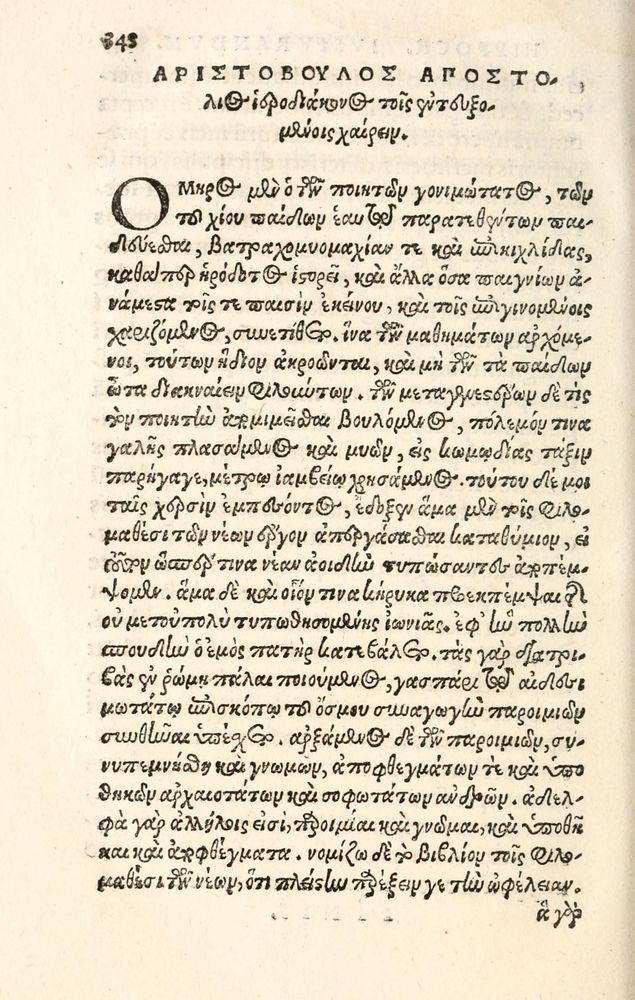 348
ΑΡΙΣΤΟΒΟΥΛΟΣ ΑΠΟΣΤΟ-
λιος ἱεροδιάκονος τοῖς ἐντευξο-
μένοις χαίρειν.
ΟΜηρος μὲν ὁ τῶν ποιητῶν γονιμώτατος, τῶν
τοῦ χίου παίδων ἑαυτῷ παρατεθέντων παι-
δεύεσθαι, βατραχομυομαχίαν τε καὶ ἐπικιχλίδας,
καθάπερ ἡρόδοτος ἱστορεῖ, καὶ ἄλλα ὅσα παιγνίων ἀ-
νάμεστα τοῖς τε παισὶν ἐκείνου, καὶ τοῖς ἐπιγινομένοις
χαριζόμενος, συνετίθετο. ἵνα τῶν μαθημάτων ἀρχόμε-
νοι, τούτων ἥδιον ἀκροῶνται, καὶ μὴ τῶν τὰ παίδων
ὦτα διακναίειν φιλούντων. τῶν μεταγενεστέρων δὲ τὶς
τὸν ποιητὴν ἀπομιμεῖσθαι βουλόμενος, πόλεμόν τινα
γαλῆς πλασάμενος καὶ μυῶν, εἰς κωμῳδίας τάξιν
παρήγαγε, μέτρῳ ἰαμβείῳ χρησάμενος. τούτου δέ μοι
ταῖς χερσὶν ἐμπεσόντος, ἔδοξεν ἅμα μὲν τοῖς φιλο-
μαθέσι τῶν νέων ἔργον ἀπεργάσασθαι καταθύμιον, εἰ
ὥσπερ τινα νέαν ἀοιδὴν τυπώσαντες ἀποπέμ-
ψομεν. ἅμα δὲ καὶ οἷόν τινα κήρυκα προεκπέμψαι τῆς
οὐ μετοὐπολὺ τυπωθησομένης ἰωνιᾶς. ἐφ᾽ ᾗ πολλὴν
σπουδὴν ὁ ἐμὸς πατὴρ κατεβάλετο. τὰς γὰρ διατρι-
βὰς ἐν ῥώμῃ πάλαι ποιούμενος, γασπάρι τῷ αἰδεσι
μωτάτῳ ἐπισκόπῳ τοῦ ὄσμου συναγωγὴν παροιμιῶν
συνθεῖναι ὑπέσχετο. ἀρξάμενος δὲ τῶν παροιμιῶν, συ-
νυπεμνήσθη καὶ γνωμῶν, ἀποφθεγμάτων τὲ καὶ ὑπο
θηκῶν ἀρχαιοτάτων καὶ σοφωτάτων ἀνδρῶν. ἀδελ-
φὰ γὰρ ἀλλήλοις εἰσὶ, παροιμίαι καὶ γνῶμαι, καὶ ὑποθῆ
και καὶ ἀποφθέγματα. νομίζω δὲ τὸ βιβλίον τοῖς φιλο-
μαθέσι τῶν νέων, ὅτι πλείστην παρέξειν γε τὴν ὠφέλειαν.
ἃ γὰρ